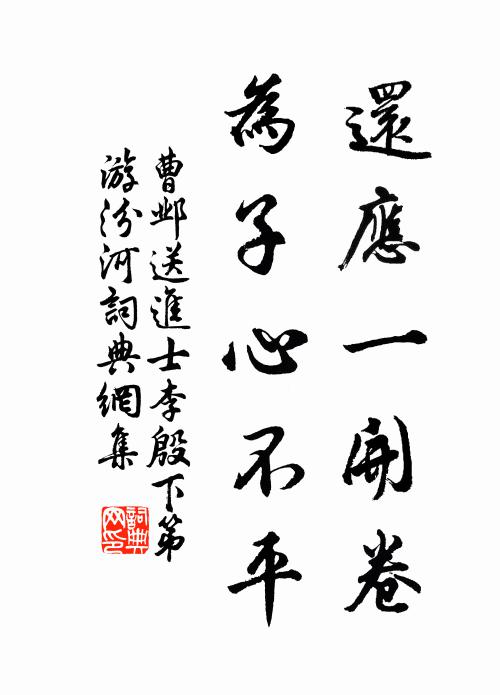 還應一開卷
為子心不平
曹鄴送進士李殷下第
游汾河詞典網集
詞典
网印